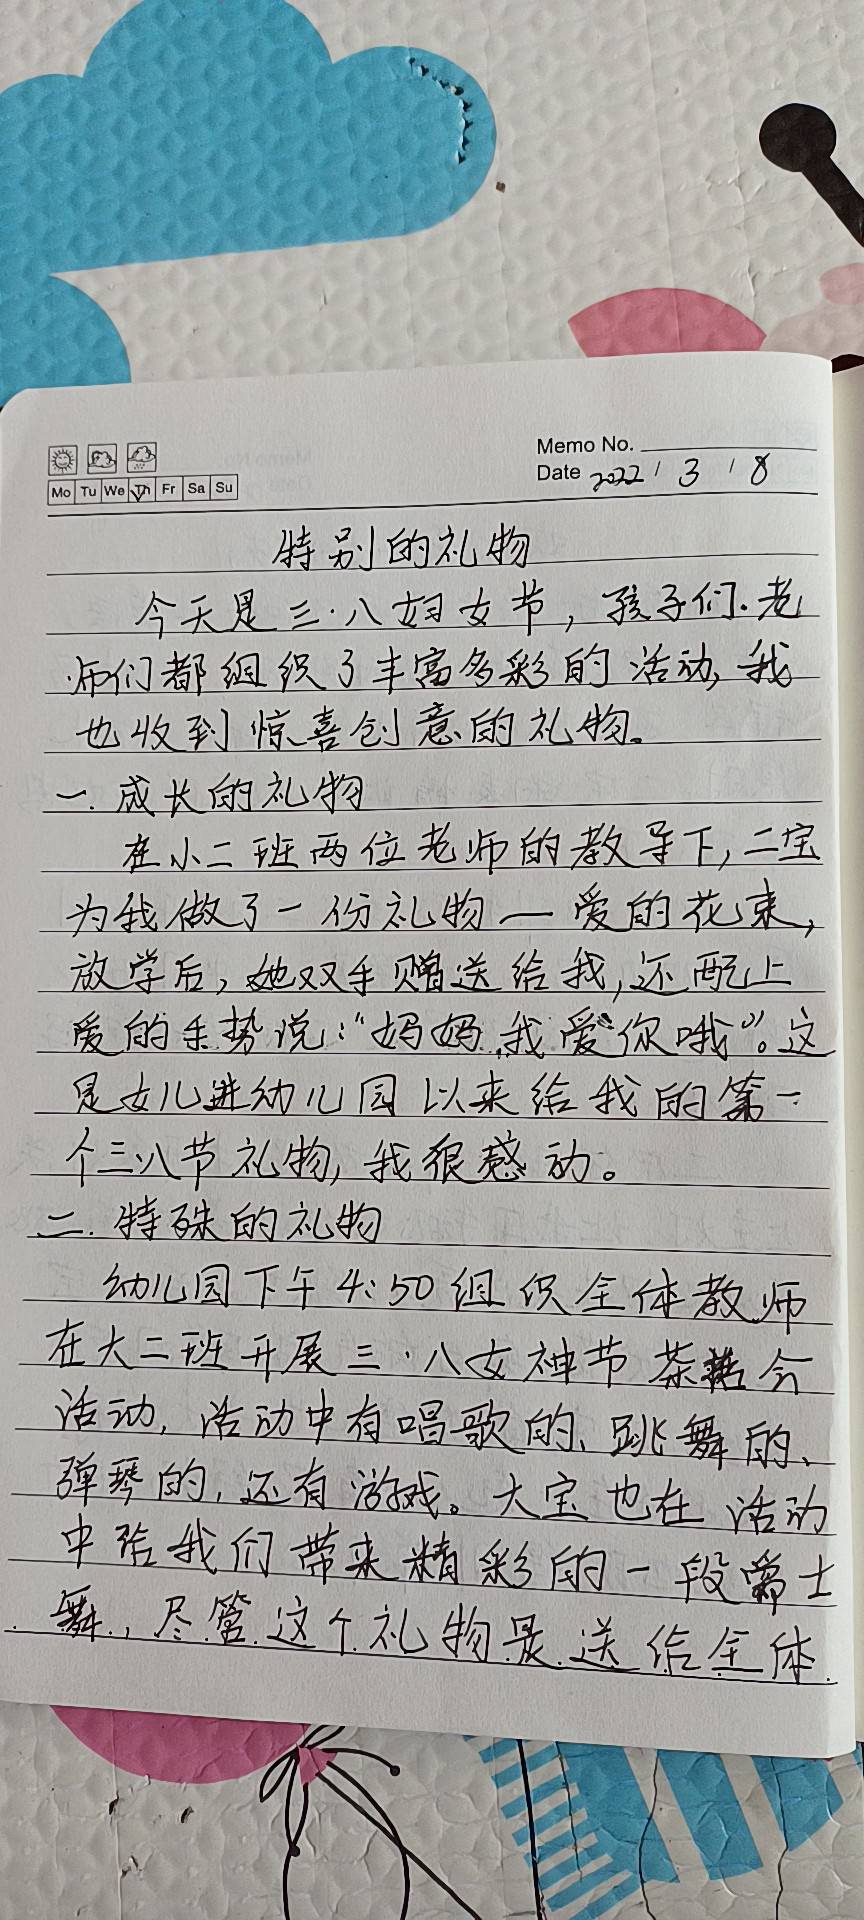 Memo No.
Mo Tu We Th Fr Sa Su
Date 2022 / 3 / 8
特别的礼物
今天是三·八妇女节，孩子们、老
师们都组织了丰富多彩的活动，我
也收到惊喜创意的礼物。
一. 成长的礼物
在小二班两位老师的教导下，二宝
为我做了一份礼物—爱的花束，
放学后，她双手赠送给我，还配上
爱的手势说：“妈妈，我爱你哦”。这
是女儿进幼儿园以来给我的第一
个三八节礼物，我很感动。
二. 特殊的礼物
幼儿园下午4:50组织全体教师
在大二班开展三·八女神节茶话会
活动，活动中有唱歌的、跳舞的、
弹琴的，还有游戏。大宝也在活动
中给我们带来精彩的一段爵士
舞，尽管这个礼物是送给全体